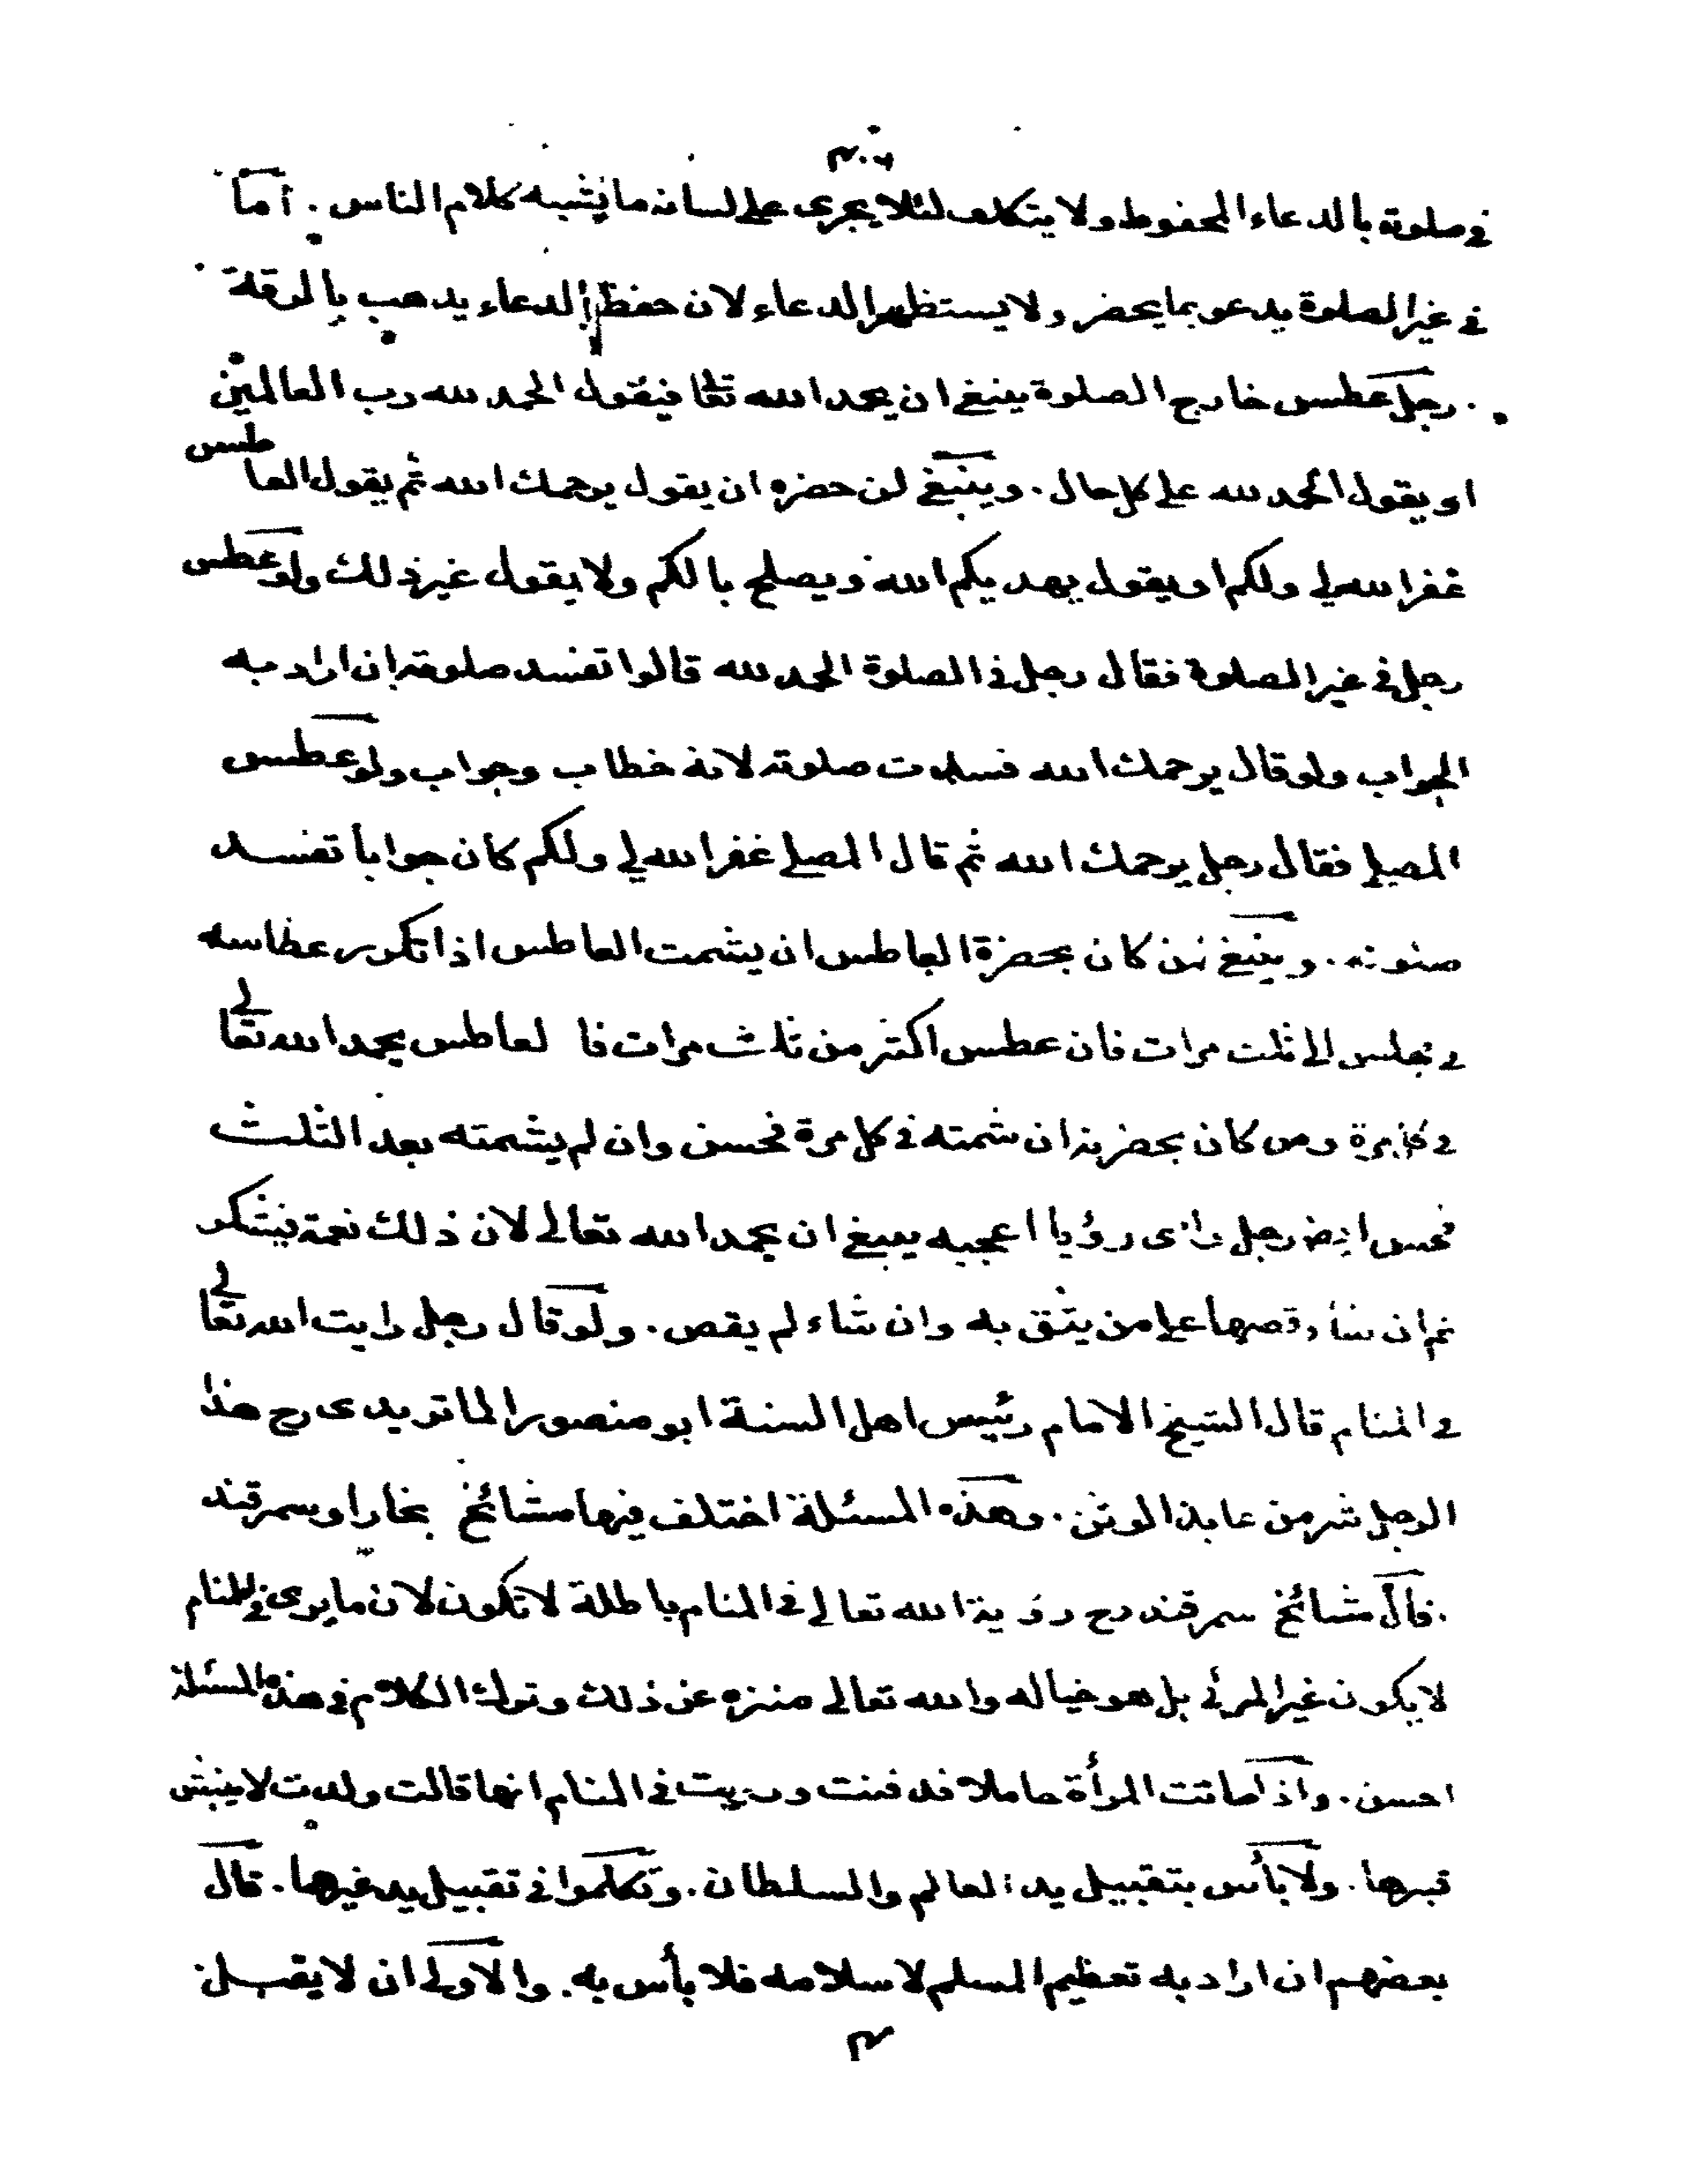 في صلوته بالدعاء المحفوظ ولا يتكلف لئلا يجرى على لسانه ما يشبه كلام الناس . اما
في غير الصلوة يدعو بما يحضر ولا يستظهر الدعاء لان حفظ الدعاء يذهب بالرقة
. رجل عطس خارج الصلوة ينبغى ان يحمد الله تعا فيقول الحمد لله رب العالمين
او يقول الحمد لله على كل حال . وينبغى لمن حضره ان يقول يرحمك الله ثم يقول العاطس
غفر الله لي ولكم او يقول يهديكم الله ويصلح بالكم ولا يقول غير ذلك ولو عطس
رجل في غير الصلوة فقال رجل في الصلوة الحمد لله قالوا تفسد صلوته ان اراد به
الجواب ولو قال يرحمك الله فسدت صلوته لانه خطاب وجواب ولو عطس
المصلى فقال رجل يرحمك الله ثم قال المصلى غفر الله لي ولكم كان جوابا تفسد
صلوته . وينبغى لمن كان بحضرة العاطس ان يشمت العاطس اذا تكرر عطاسه
في مجلس الى ثلث مرات فان عطس اكثر من ثلث مرات فالعاطس يحمد الله تعالى
في كل مرة ومن كان بحضرته ان شمته في كل مرة فحسن وان لم يشمته بعد الثلث
فحسن ايضا رجل رأى رؤيا اعجبه ينبغى ان يحمد الله تعالى لان ذلك نعمة فيشكر
ثم ان شاء قصها على من يثق به وان شاء لم يقص . ولو قال رجل رايت الله تعالى
في المنام قال الشيخ الامام رئيس اهل السنة ابو منصور الماتريدى رح هذا
الرجل شر من عابد الوثن . وهذه المسئلة اختلف فيها مشائخ بخارا وسمرقند
. قال مشائخ سمرقند رح رؤية الله تعالى في المنام باطلة لا تكون لان ما يرى في المنام
لا يكون غير المرئى بل هو خياله والله تعالى منزه عن ذلك وترك الكلام في هذه المسئلة
احسن . واذا ماتت المرأة حاملا فدفنت وريت في المنام انها قالت ولدت لا ينبش
قبرها . ولا بأس بتقبيل يد العالم والسلطان . وتكلموا في تقبيل يد غيرها . قال
بعضهم ان اراد به تعظيم المسلم لاسلامه فلا بأس به . والاولى ان لا يقبل